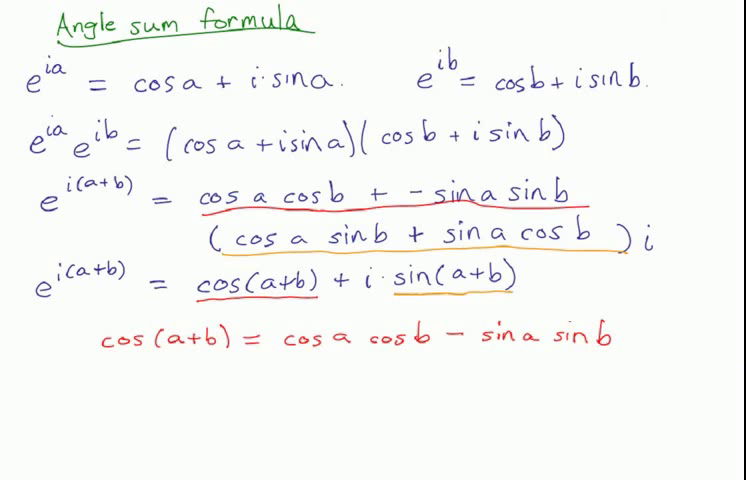 Angle sum formula
e^{ia} = cos a + i · sin a. e^{ib} = cos b + i sin b.
e^{ia} e^{ib} = (cos a + i sin a)(cos b + i sin b)
e^{i(a+b)} = cos a cos b + - sin a sin b
(cos a sin b + sin a cos b) i
e^{i(a+b)} = cos(a+b) + i · sin(a+b)
cos(a+b) = cos a cos b - sin a sin b